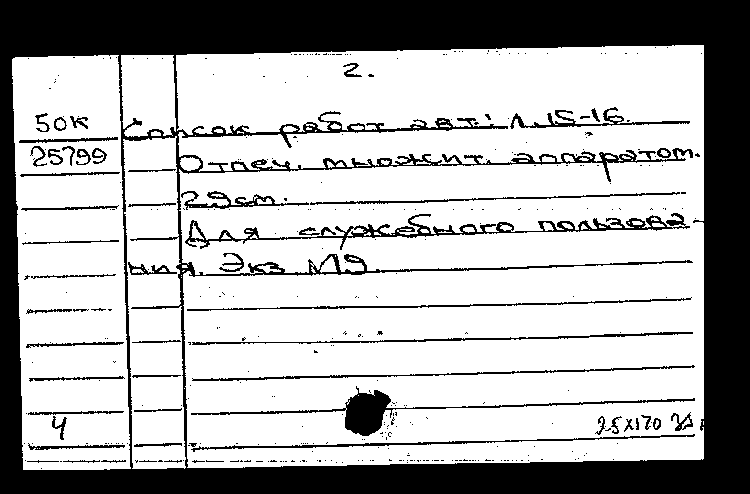 2.
50к Список работ авт.: Л. 15-16.
25799 Отпеч. множит. аппаратом.
29см.
Для служебного пользова-
ния. Экз №9.
4 25X170